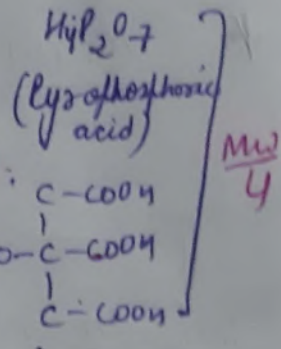 H4P2O7
(Pyrophosphoric
acid)
C-COOH
O-C-COOH
C-COOH
MW
4